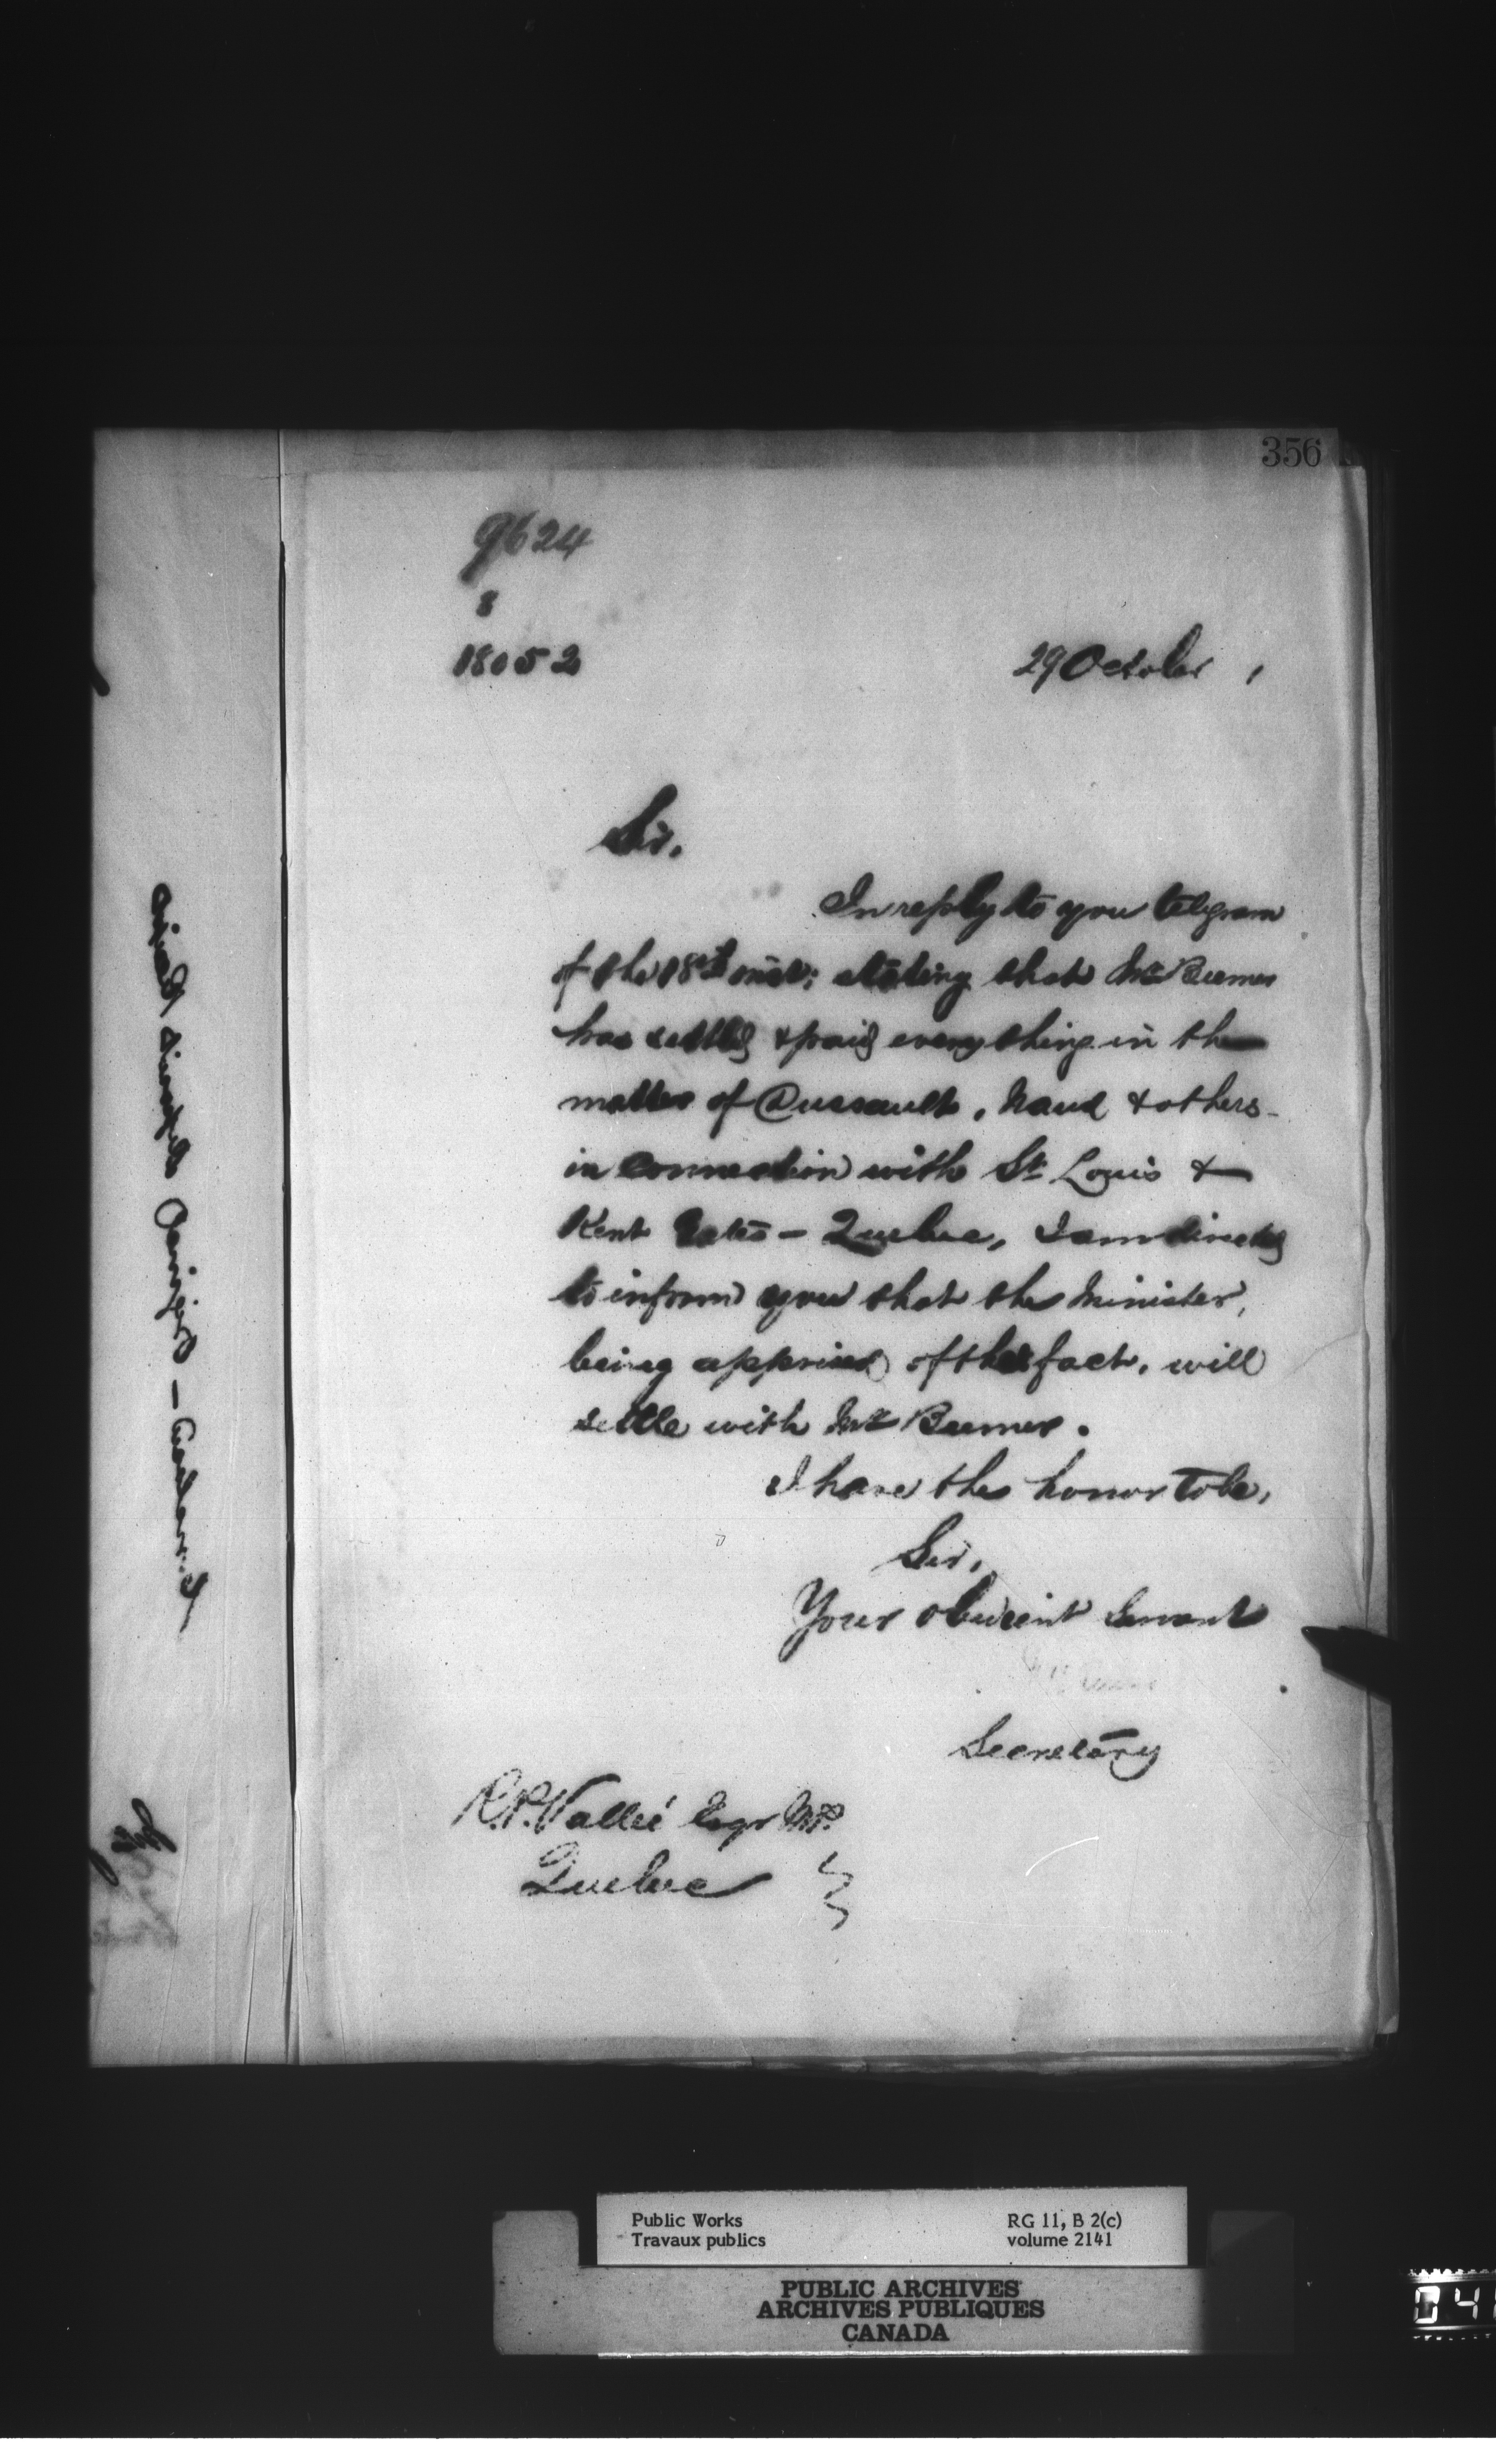 356
9624
8
18052
29 October,
Sir,
In reply to your telegram
of the 18th inst: stating that Mr Beemer
has settled & paid everything in the
matter of Dussault, Naud & others
in connection with St Louis &
Kent Gates - Quebec, I am directed
to inform you that the Minister,
being apprised of the fact, will
settle with Mr Beemer.
I have the honor to be,
Sir,
Your obedient Servant
Secretary
R.P. Vallée Esqr M.P.
Quebec
Public Works
Travaux publics
RG 11, B 2(c)
volume 2141
PUBLIC ARCHIVES
ARCHIVES PUBLIQUES
CANADA